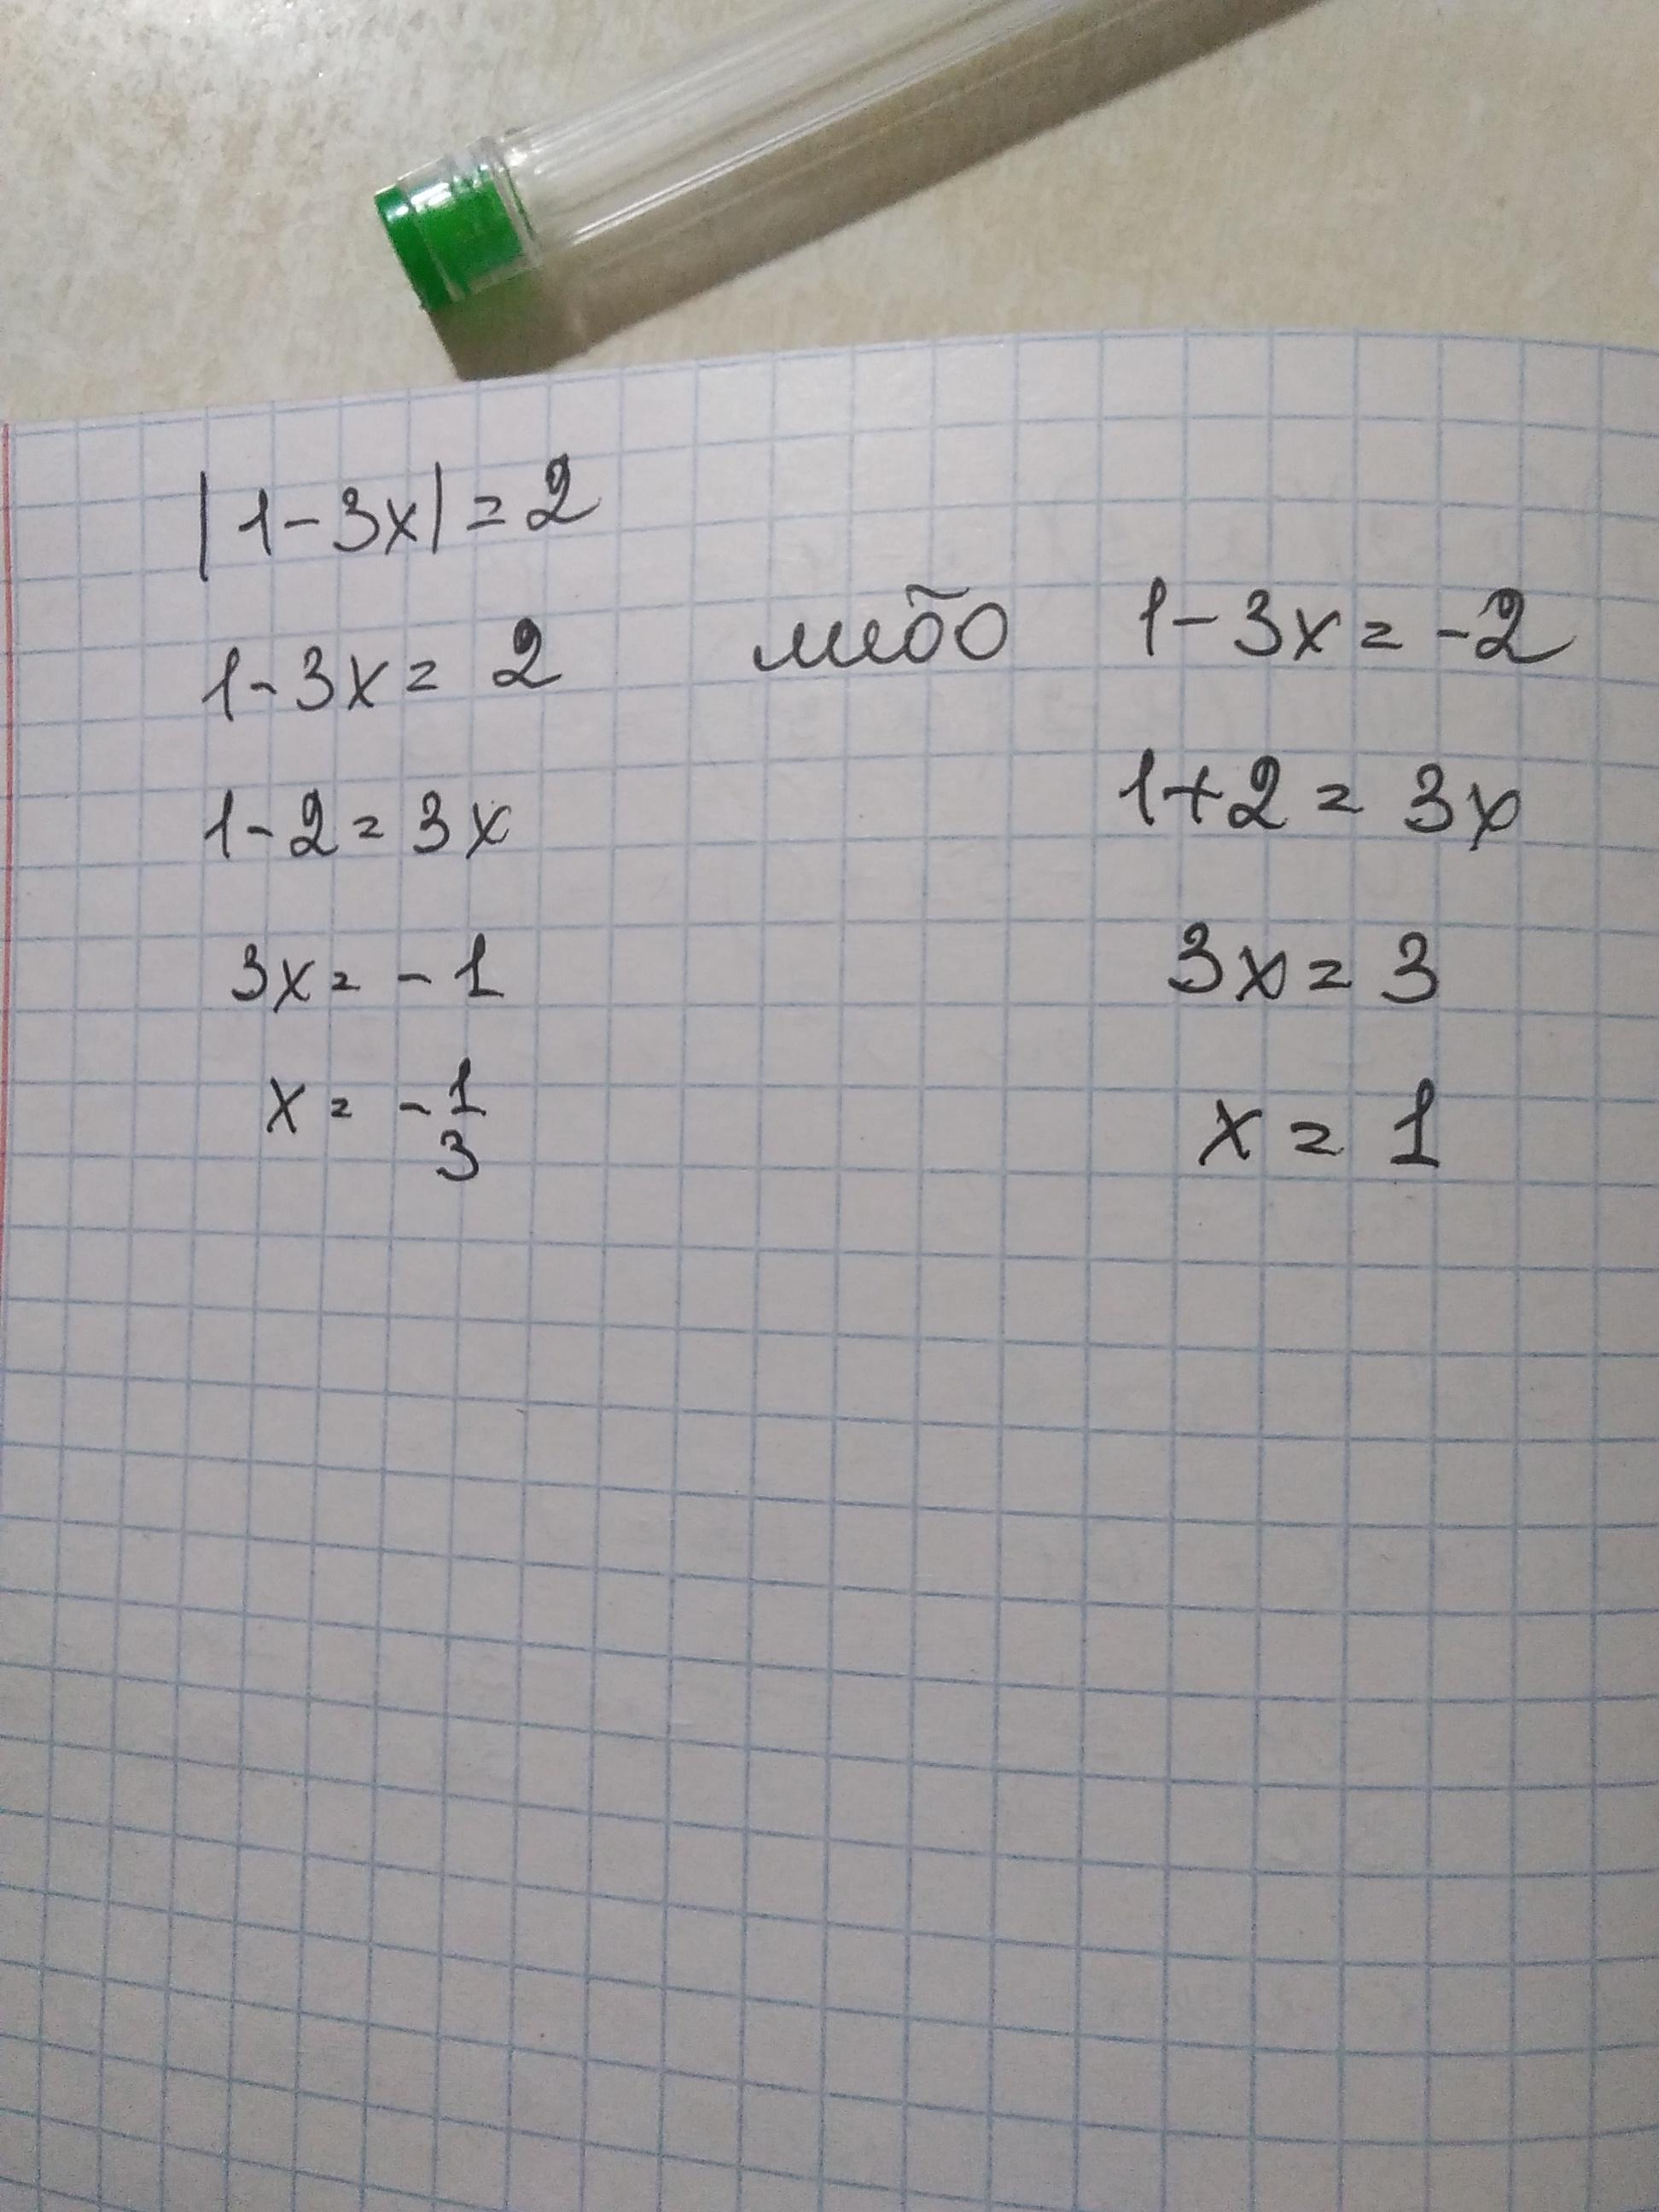 |1-3x|=2
1-3x=2 либо 1-3x=-2
1-2=3x 1+2=3x
3x=-1 3x=3
x=-1/3 x=1